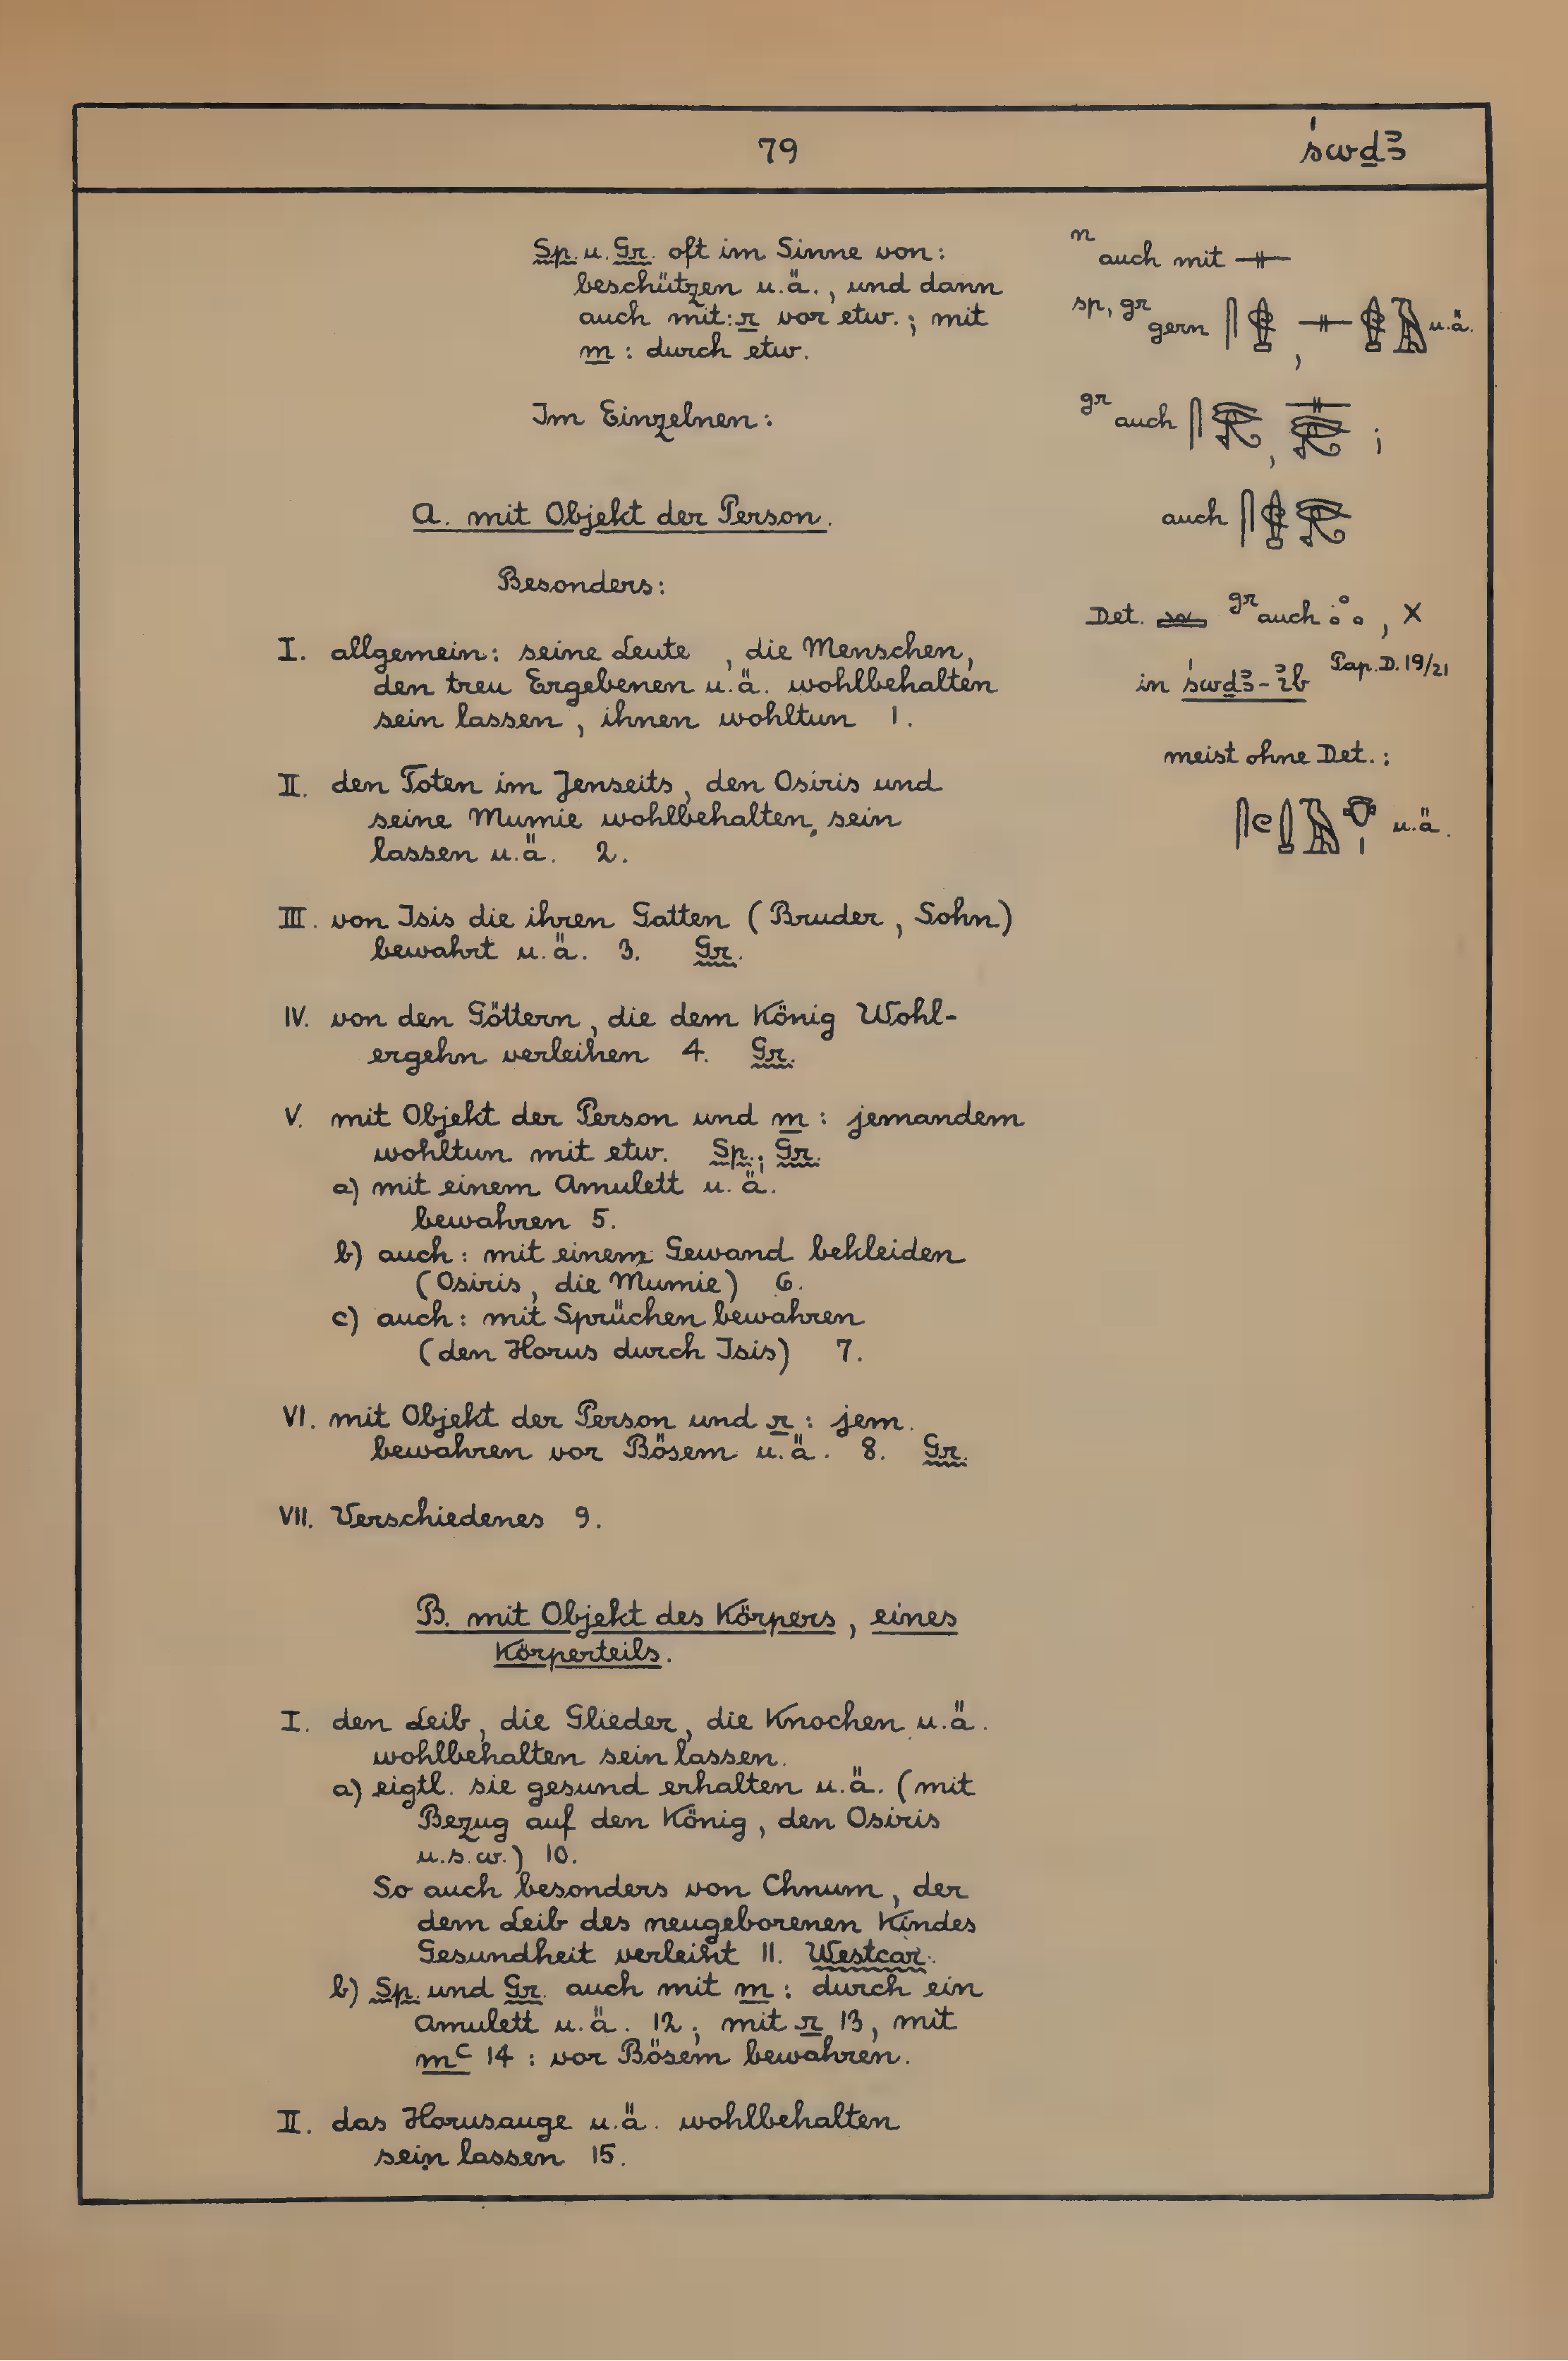 79
śwḏꜣ
Sp. u. Gr. oft im Sinne von:
beschützen u.ä., und dann
auch mit: r vor etw.; mit
m: durch etw.
Im Einzelnen:
A. mit Objekt der Person.
Besonders:
I. allgemein: seine Leute , die Menschen,
den treu Ergebenen u.ä. wohlbehalten
sein lassen, ihnen wohltun 1.
II. den Toten im Jenseits, den Osiris und
seine Mumie wohlbehalten sein
lassen u.ä. 2.
III. von Isis die ihren Gatten (Bruder, Sohn)
bewahrt u.ä. 3. Gr.
IV. von den Göttern, die dem König Wohl-
ergehn verleihen 4. Gr.
V. mit Objekt der Person und m: jemandem
wohltun mit etw. Sp.; Gr.
a) mit einem Amulett u.ä.
bewahren 5.
b) auch: mit einem Gewand bekleiden
(Osiris, die Mumie) 6.
c) auch: mit Sprüchen bewahren
(den Horus durch Isis) 7.
VI. mit Objekt der Person und r: jem.
bewahren vor Bösem u.ä. 8. Gr.
VII. Verschiedenes 9.
B. mit Objekt des Körpers, eines
Körperteils.
I. den Leib, die Glieder, die Knochen u.ä.
wohlbehalten sein lassen.
a) eigtl. sie gesund erhalten u.ä. (mit
Bezug auf den König, den Osiris
u.s.w.) 10.
So auch besonders von Chnum, der
dem Leib des neugeborenen Kindes
Gesundheit verleiht 11. Westcar.
b) Sp. und Gr. auch mit m: durch ein
Amulett u.ä. 12; mit r 13, mit
mꜥ 14: vor Bösem bewahren.
II. das Horusauge u.ä. wohlbehalten
sein lassen 15.
n auch mit 𓊃
sp, gr gern , u.ä.
gr auch 𓋴𓂀, 𓊃𓂀;
auch
Det. gr auch , X
in śwḏꜣ-ỉb Pap. D. 19/21
meist ohne Det.:
u.ä.